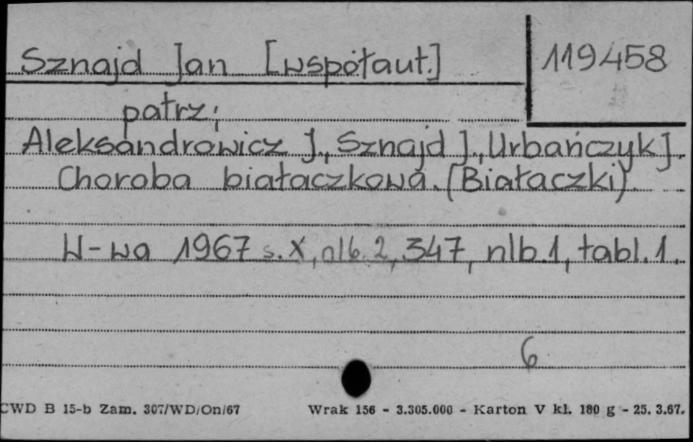 Sznajd Jan [współaut.]
119458
patrz:
Aleksandrowicz J., Sznajd J., Urbańczyk J.
Choroba białaczkowa. (Białaczki).
W-wa 1967 s. X, nlb. 2, 347, nlb. 1, tabl. 1.
6
CWD B 15-b Zam. 307/WD/On/67
Wrak 156 - 3.305.000 - Karton V kl. 180 g - 25. 3.67.